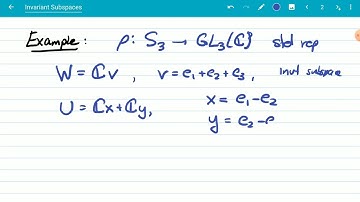 Invariant Subspaces
Example: ρ: S₃ → GL₃(ℂ) std rep
W = ℂv, v = e₁+e₂+e₃, invt subspace
U = ℂx+ℂy, x = e₁-e₂
y = e₂-e